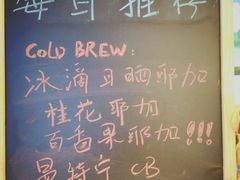 每日推荐
COLD BREW:
冰滴日晒耶加
桂花耶加
百香果耶加!!!
曼特宁 CB